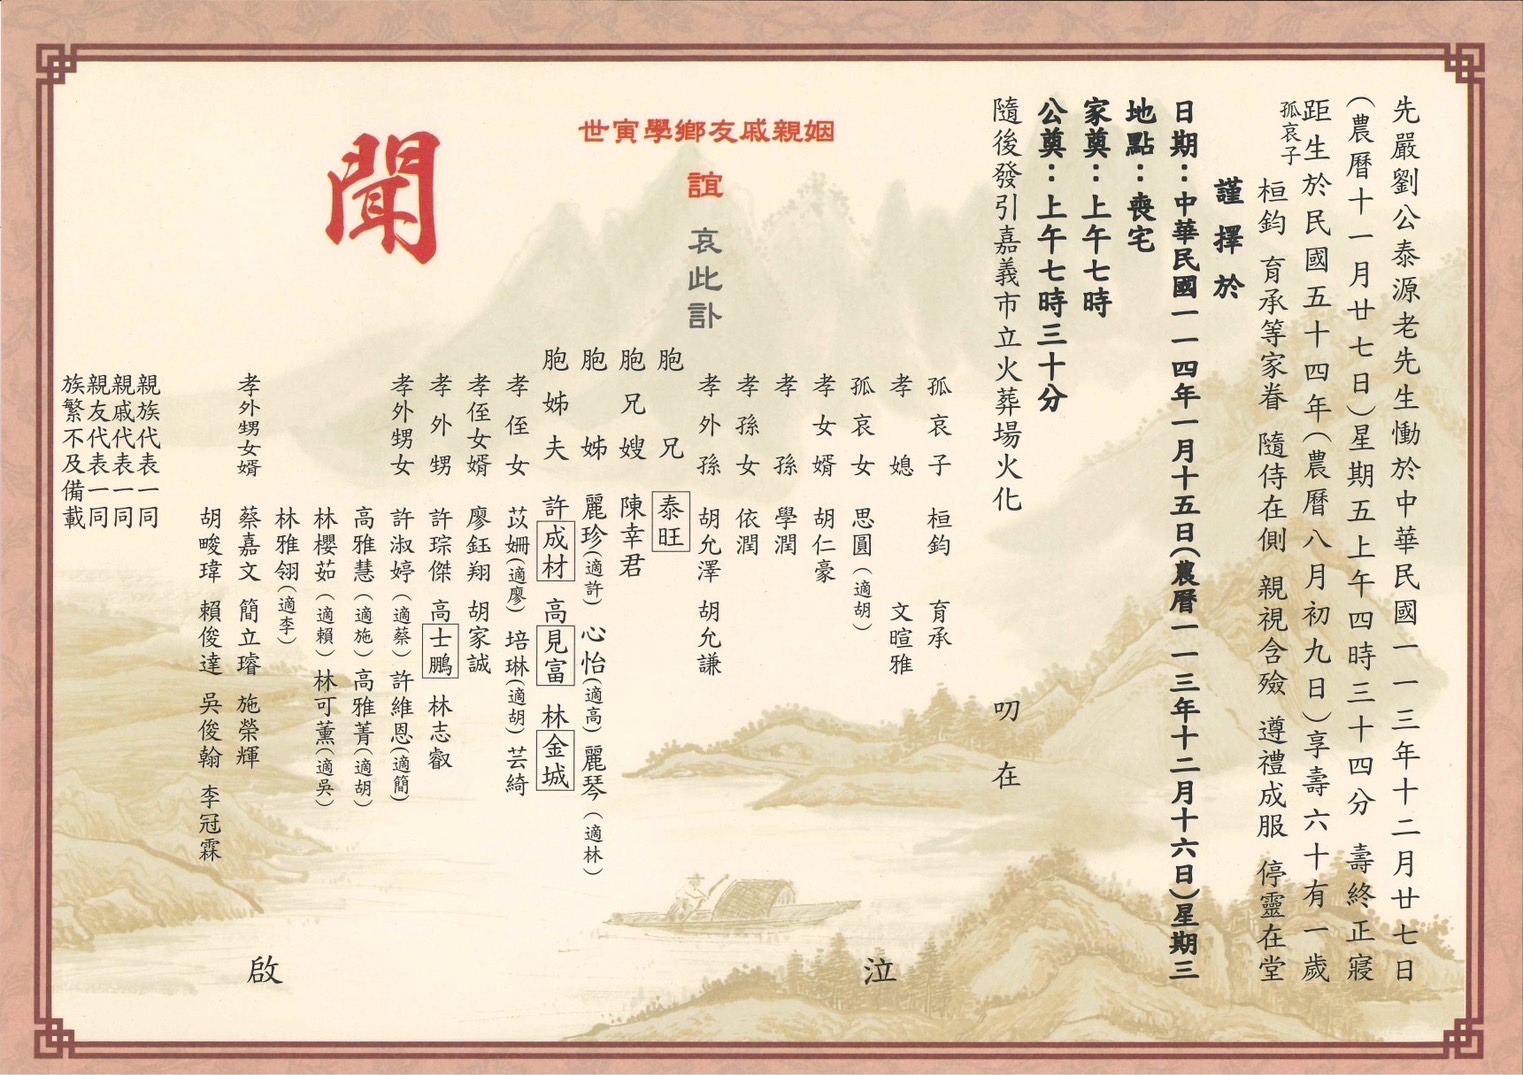 先嚴劉公泰源老先生慟於中華民國一一三年十二月廿七日
(農曆十一月廿七日)星期五上午四時三十四分 壽終正寢
距生於民國五十四年(農曆八月初九日)享壽六十有一歲
孤哀子 桓鈞 育承等家眷 隨侍在側 親視含殮 遵禮成服 停靈在堂
謹擇於
日期：中華民國一一四年一月十五日(農曆一一三年十二月十六日)星期三
地點：喪宅
家奠：上午七時
公奠：上午七時三十分
隨後發引嘉義市立火葬場火化
叨在
世寅學鄉友戚親姻
誼
哀此訃
聞
孤哀子 桓鈞 育承
孝媳 文暄雅
孤哀女 思圓(適胡)
孝女婿 胡仁豪
孝孫 學潤
孝孫女 依潤
孝外孫 胡允澤 胡允謙
胞兄 泰旺
胞兄嫂 陳幸君
胞姊 麗珍(適許) 心怡(適高) 麗琴(適林)
胞姊夫 許成材 高見富 林金城
孝侄女 苡姍(適廖) 培琳(適胡) 芸綺
孝侄女婿 廖鈺翔 胡家誠
孝外甥 許琮傑 高士鵬 林志叡
孝外甥女 許淑婷(適蔡) 許維恩(適簡)
高雅慧(適施) 高雅菁(適胡)
林櫻茹(適賴) 林可薰(適吳)
林雅翎(適李)
孝外甥女婿 蔡嘉文 簡立璿 施榮輝
胡畯瑋 賴俊達 吳俊翰 李冠霖
親族代表一同
親戚代表一同
親友代表一同
族繁不及備載
泣
啟